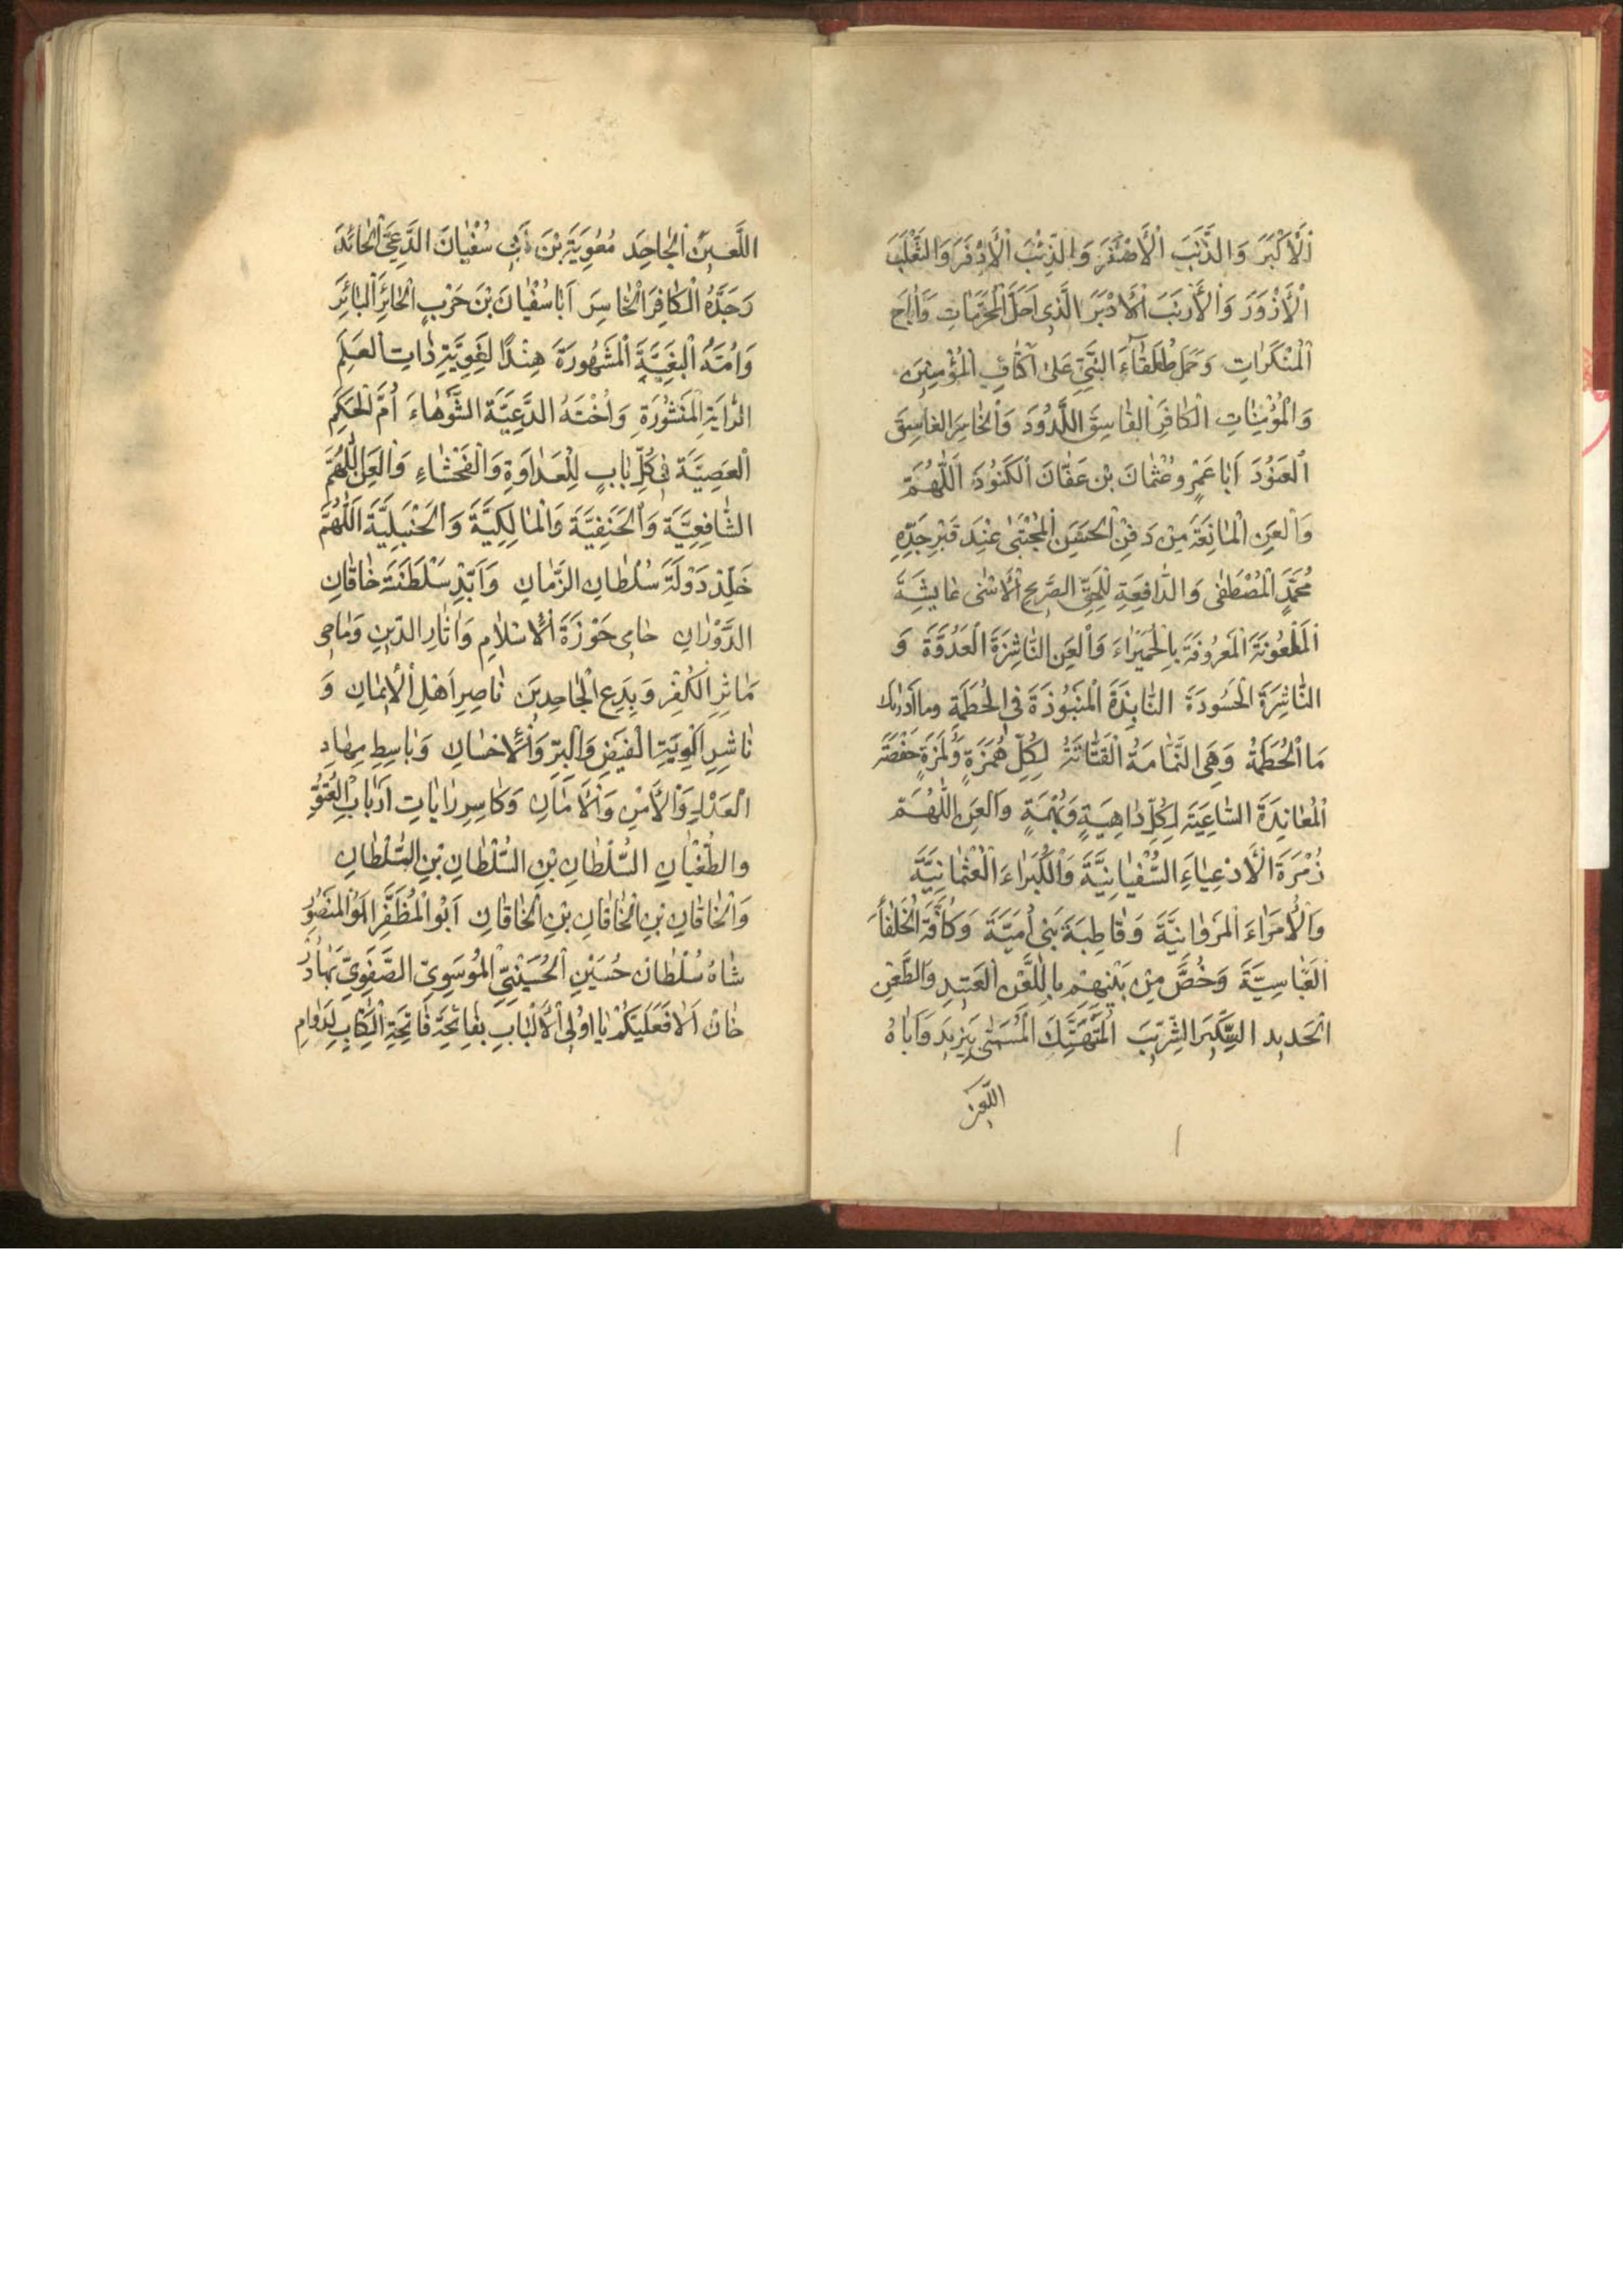 الْأَكْبَرَ وَالذَّنَبَ الْأَصْغَرَ وَالذِّئْبَ الْأَذْفَرَ وَالثَّعْلَبَ
الْأَزْوَرَ وَالْأَرْنَبَ الْأَدْبَرَ الَّذِى اَحَلَّ الْمُحَرَّمَاتِ وَاَبَاحَ
الْمُنْكَرَاتِ وَحَمَلَ طُلَقَاءَ النَّبِيِّ عَلَى اَكْتَافِ الْمُؤْمِنِينَ
وَالْمُؤْمِنَاتِ الْكَافِرَ الْفَاسِقَ اللَّدُودَ وَالْخَاسِرَ الْغَاسِقَ
الْعَنُودَ اَبَا عَمْرٍو عُثْمَانَ بْنَ عَفَّانَ الْكَنُودَ اَللّٰهُمَّ
وَالْعَنِ الْمَانِعَةَ مِنْ دَفْنِ الْحَسَنِ الْمُجْتَبٰى عِنْدَ قَبْرِ جَدِّهِ
مُحَمَّدٍ الْمُصْطَفٰى وَالدَّافِعَةِ لِلْحَقِّ الصَّرِيحِ الْاَسْنٰى عَايِشَةَ
الْمَلْعُونَةَ الْمَعْرُوفَةَ بِالْحُمَيْرَاءَ وَالْعَنِ النَّاشِزَةَ الْعَدُوَّةَ وَ
النَّاشِرَةَ الْحَسُودَةَ النَّابِذَةَ الْمَنْبُوذَةَ فِى الْحُطَمَةِ وَمَا اَدْرٰىكَ
مَا الْحُطَمَةُ وَهِىَ النَّمَّامَةُ الْفَتَّانَةُ لِكُلِّ هُمَزَةٍ وَلُمَزَةٍ حَفْصَةَ
الْمُعَانِدَةَ السَّاعِيَةَ لِكُلِّ دَاهِيَةٍ وَبُهْمَةٍ وَالْعَنِ اللّٰهُمَّ
زُمْرَةَ الْأَدْعِيَاءِ السُّفْيَانِيَّةَ وَالْكُبَرَاءَ الْعُثْمَانِيَّةَ
وَالْأُمَرَاءَ الْمَرْوَانِيَّةَ وَقَاطِبَةَ بَنِى اُمَيَّةَ وَكَافَّةَ الْخُلَفَاءَ
الْعَبَّاسِيَّةَ وَخُصَّ مِنْ بَيْنِهِمْ بِاللَّعْنِ الْعَتِيدِ وَالطَّعْنِ
الْحَدِيدِ السِّكِّيرَ الشِّرِّيبَ الْمُتَهَتِّكَ الْمُسَمّٰى بِيَزِيدَ وَاَبَاهُ
اللَّعِينَ
اللَّعِينَ الْجَاحِدَ مُعٰوِيَةَ بْنَ اَبِى سُفْيَانَ الدَّعِىَّ الْحَائِدَ
وَجَدَّهُ الْكَافِرَ الْخَاسِرَ اَبَا سُفْيَانَ بْنَ حَرْبٍ الْحَائِرَ الْبَائِرَ
وَاُمَّهُ الْبَغِيَّةَ الْمَشْهُورَةَ هِنْدًا الْغَوِيَّةَ ذَاتِ الْعَلَمِ
الرَّايَةِ الْمَنْشُورَةِ وَاُخْتَهُ الدَّعِيَّةَ الشَّوْهَاءَ اُمَّ الْحَكَمِ
الْعَصِيَّةَ فِى كُلِّ بَابٍ لِلْعَدَاوَةِ وَالْفَحْشَاءِ وَالْعَنِ اللّٰهُمَّ
الشَّافِعِيَّةَ وَالْحَنَفِيَّةَ وَالْمَالِكِيَّةَ وَالْحَنْبَلِيَّةَ اَللّٰهُمَّ
خَلِّدْ دَوْلَةَ سُلْطَانِ الزَّمَانِ وَاَبِّدْ سَلْطَنَةَ خَاقَانِ
الدَّوْرَانِ حَامِى حَوْزَةَ الْاِسْلَامِ وَاٰثَارِ الدِّينِ وَمَاحِى
مَاٰثِرِ الْكُفْرِ وَبِدَعِ الْجَاحِدِينَ نَاصِرِ اَهْلِ الْاِيمَانِ وَ
نَاشِرِ اَلْوِيَةِ الْفَيْضِ وَالْبِرِّ وَالْاِحْسَانِ وَبَاسِطِ مِهَادِ
الْعَدْلِ وَالْأَمْنِ وَالْاَمَانِ وَكَاسِرِ رَايَاتِ اَرْبَابِ الْعُتُوِّ
وَالطُّغْيَانِ السُّلْطَانِ بْنِ السُّلْطَانِ بْنِ السُّلْطَانِ
وَالْخَاقَانِ بْنِ الْخَاقَانِ بْنِ الْخَاقَانِ اَبُو الْمُظَفَّرِ الْمَنْصُورُ
شَاهُ سُلْطَانْ حُسَيْنِ الْحُسَيْنِيِّ الْمُوسَوِىِّ الصَّفَوِىِّ بَهَادُرْ
خَانْ اَلَا فَعَلَيْكُمْ يَا اُولِى الْأَلْبَابِ بِفَاتِحَةِ فَاتِحَةِ الْكِتَابِ لِدَوَامِ